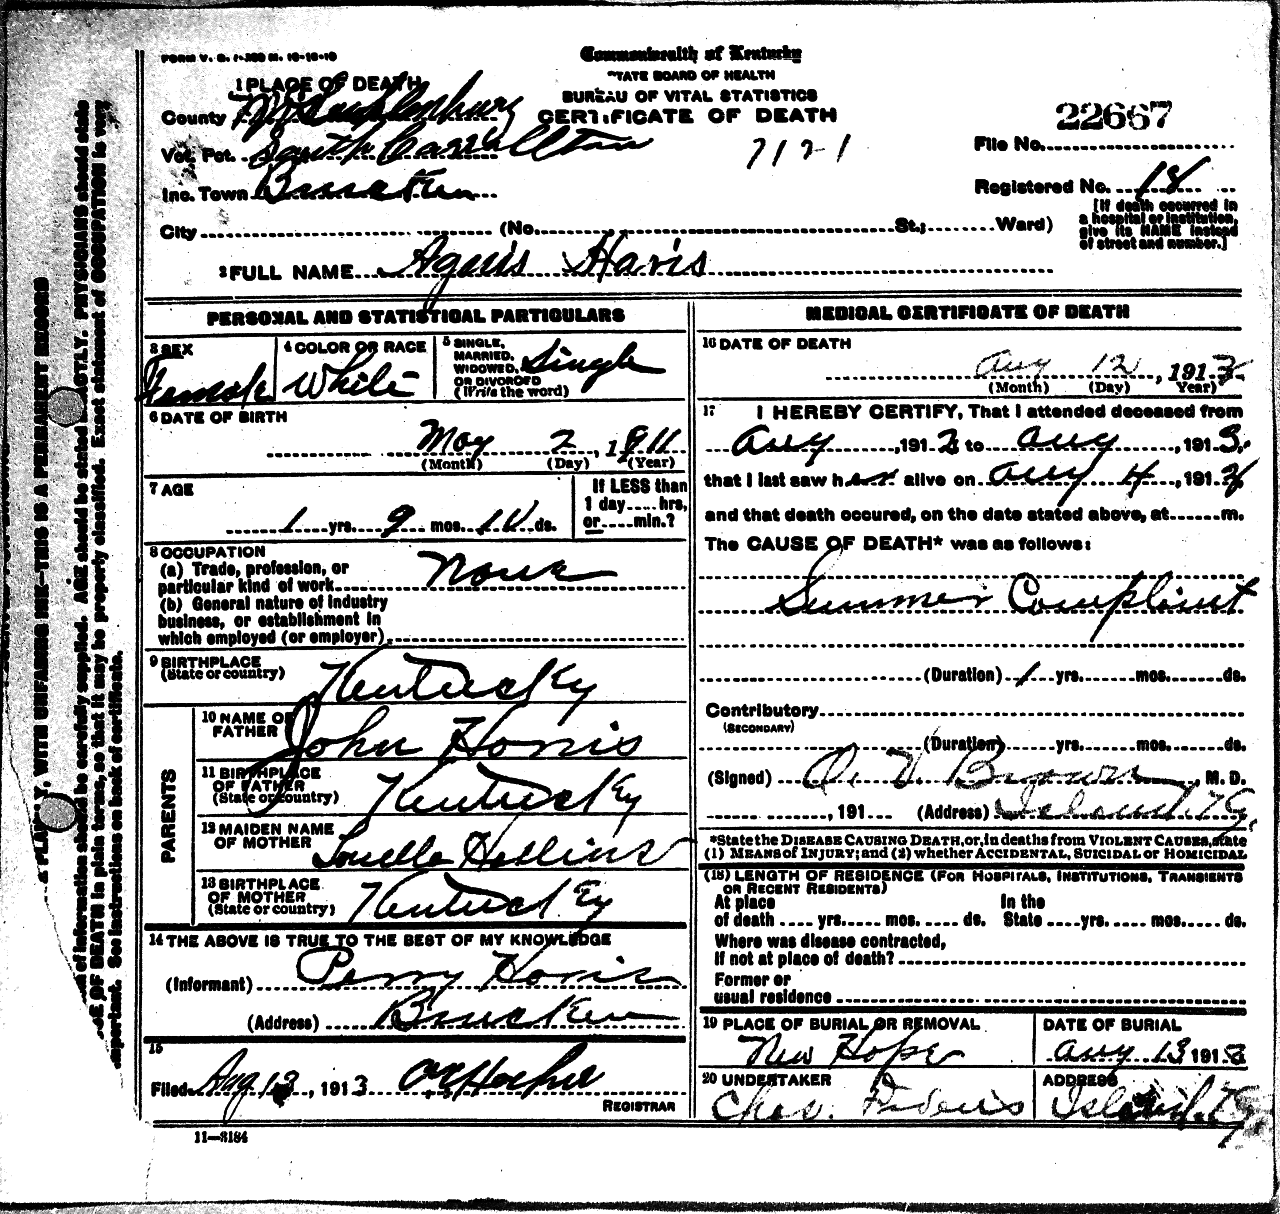 FORM V. S. 1-200 M. 10-18-10
Commonwealth of Kentucky
STATE BOARD OF HEALTH
BUREAU OF VITAL STATISTICS
CERTIFICATE OF DEATH
1 PLACE OF DEATH
County Muhlenburg
Vot. Pct. South Carrollton
Inc. Town
7121
22667
File No.
Registered No. 18
[If death occurred in a hospital or institution, give its NAME instead of street and number.]
City (No. St.; Ward)
2 FULL NAME Agnis Haris
PERSONAL AND STATISTICAL PARTICULARS
3 SEX Female
4 COLOR OR RACE White
5 SINGLE, MARRIED, WIDOWED, OR DIVORCED (Write the word) Single
6 DATE OF BIRTH
May 2, 1911
(Month) (Day) (Year)
7 AGE
1 yrs. 9 mos. 10 ds.
If LESS than 1 day hrs, or min.?
8 OCCUPATION
(a) Trade, profession, or particular kind of work None
(b) General nature of industry business, or establishment in which employed (or employer)
9 BIRTHPLACE (State or country) Kentucky
PARENTS
10 NAME OF FATHER John Horris
11 BIRTHPLACE OF FATHER (State or country) Kentucky
12 MAIDEN NAME OF MOTHER Louella Hellins
13 BIRTHPLACE OF MOTHER (State or country) Kentucky
14 THE ABOVE IS TRUE TO THE BEST OF MY KNOWLEDGE
(Informant) Perry Horris
(Address)
15
Filed Aug 13, 1913
REGISTRAR
11-3184
MEDICAL CERTIFICATE OF DEATH
16 DATE OF DEATH
Aug 12, 1913
(Month) (Day) (Year)
17 I HEREBY CERTIFY, That I attended deceased from
Aug, 1913 to Aug, 1913.
that I last saw her alive on Aug 4, 1913
and that death occured, on the date stated above, at m.
The CAUSE OF DEATH* was as follows:
Summer Complaint
(Duration) 1 yrs. mos. ds.
Contributory
(SECONDARY)
(Duration) yrs. mos. ds.
(Signed) O. V. Brown, M. D.
, 191 (Address) Island, Ky.
*State the DISEASE CAUSING DEATH, or, in deaths from VIOLENT CAUSES, state
(1) MEANS of INJURY; and (2) whether ACCIDENTAL, SUICIDAL or HOMICIDAL
(18) LENGTH OF RESIDENCE (FOR HOSPITALS, INSTITUTIONS, TRANSIENTS OR RECENT RESIDENTS)
At place of death yrs. mos. ds. In the State yrs. mos. ds.
Where was disease contracted,
If not at place of death?
Former or
usual residence
19 PLACE OF BURIAL OR REMOVAL New Hope
DATE OF BURIAL Aug 13 1913
20 UNDERTAKER Chas.
ADDRESS Island, Ky.